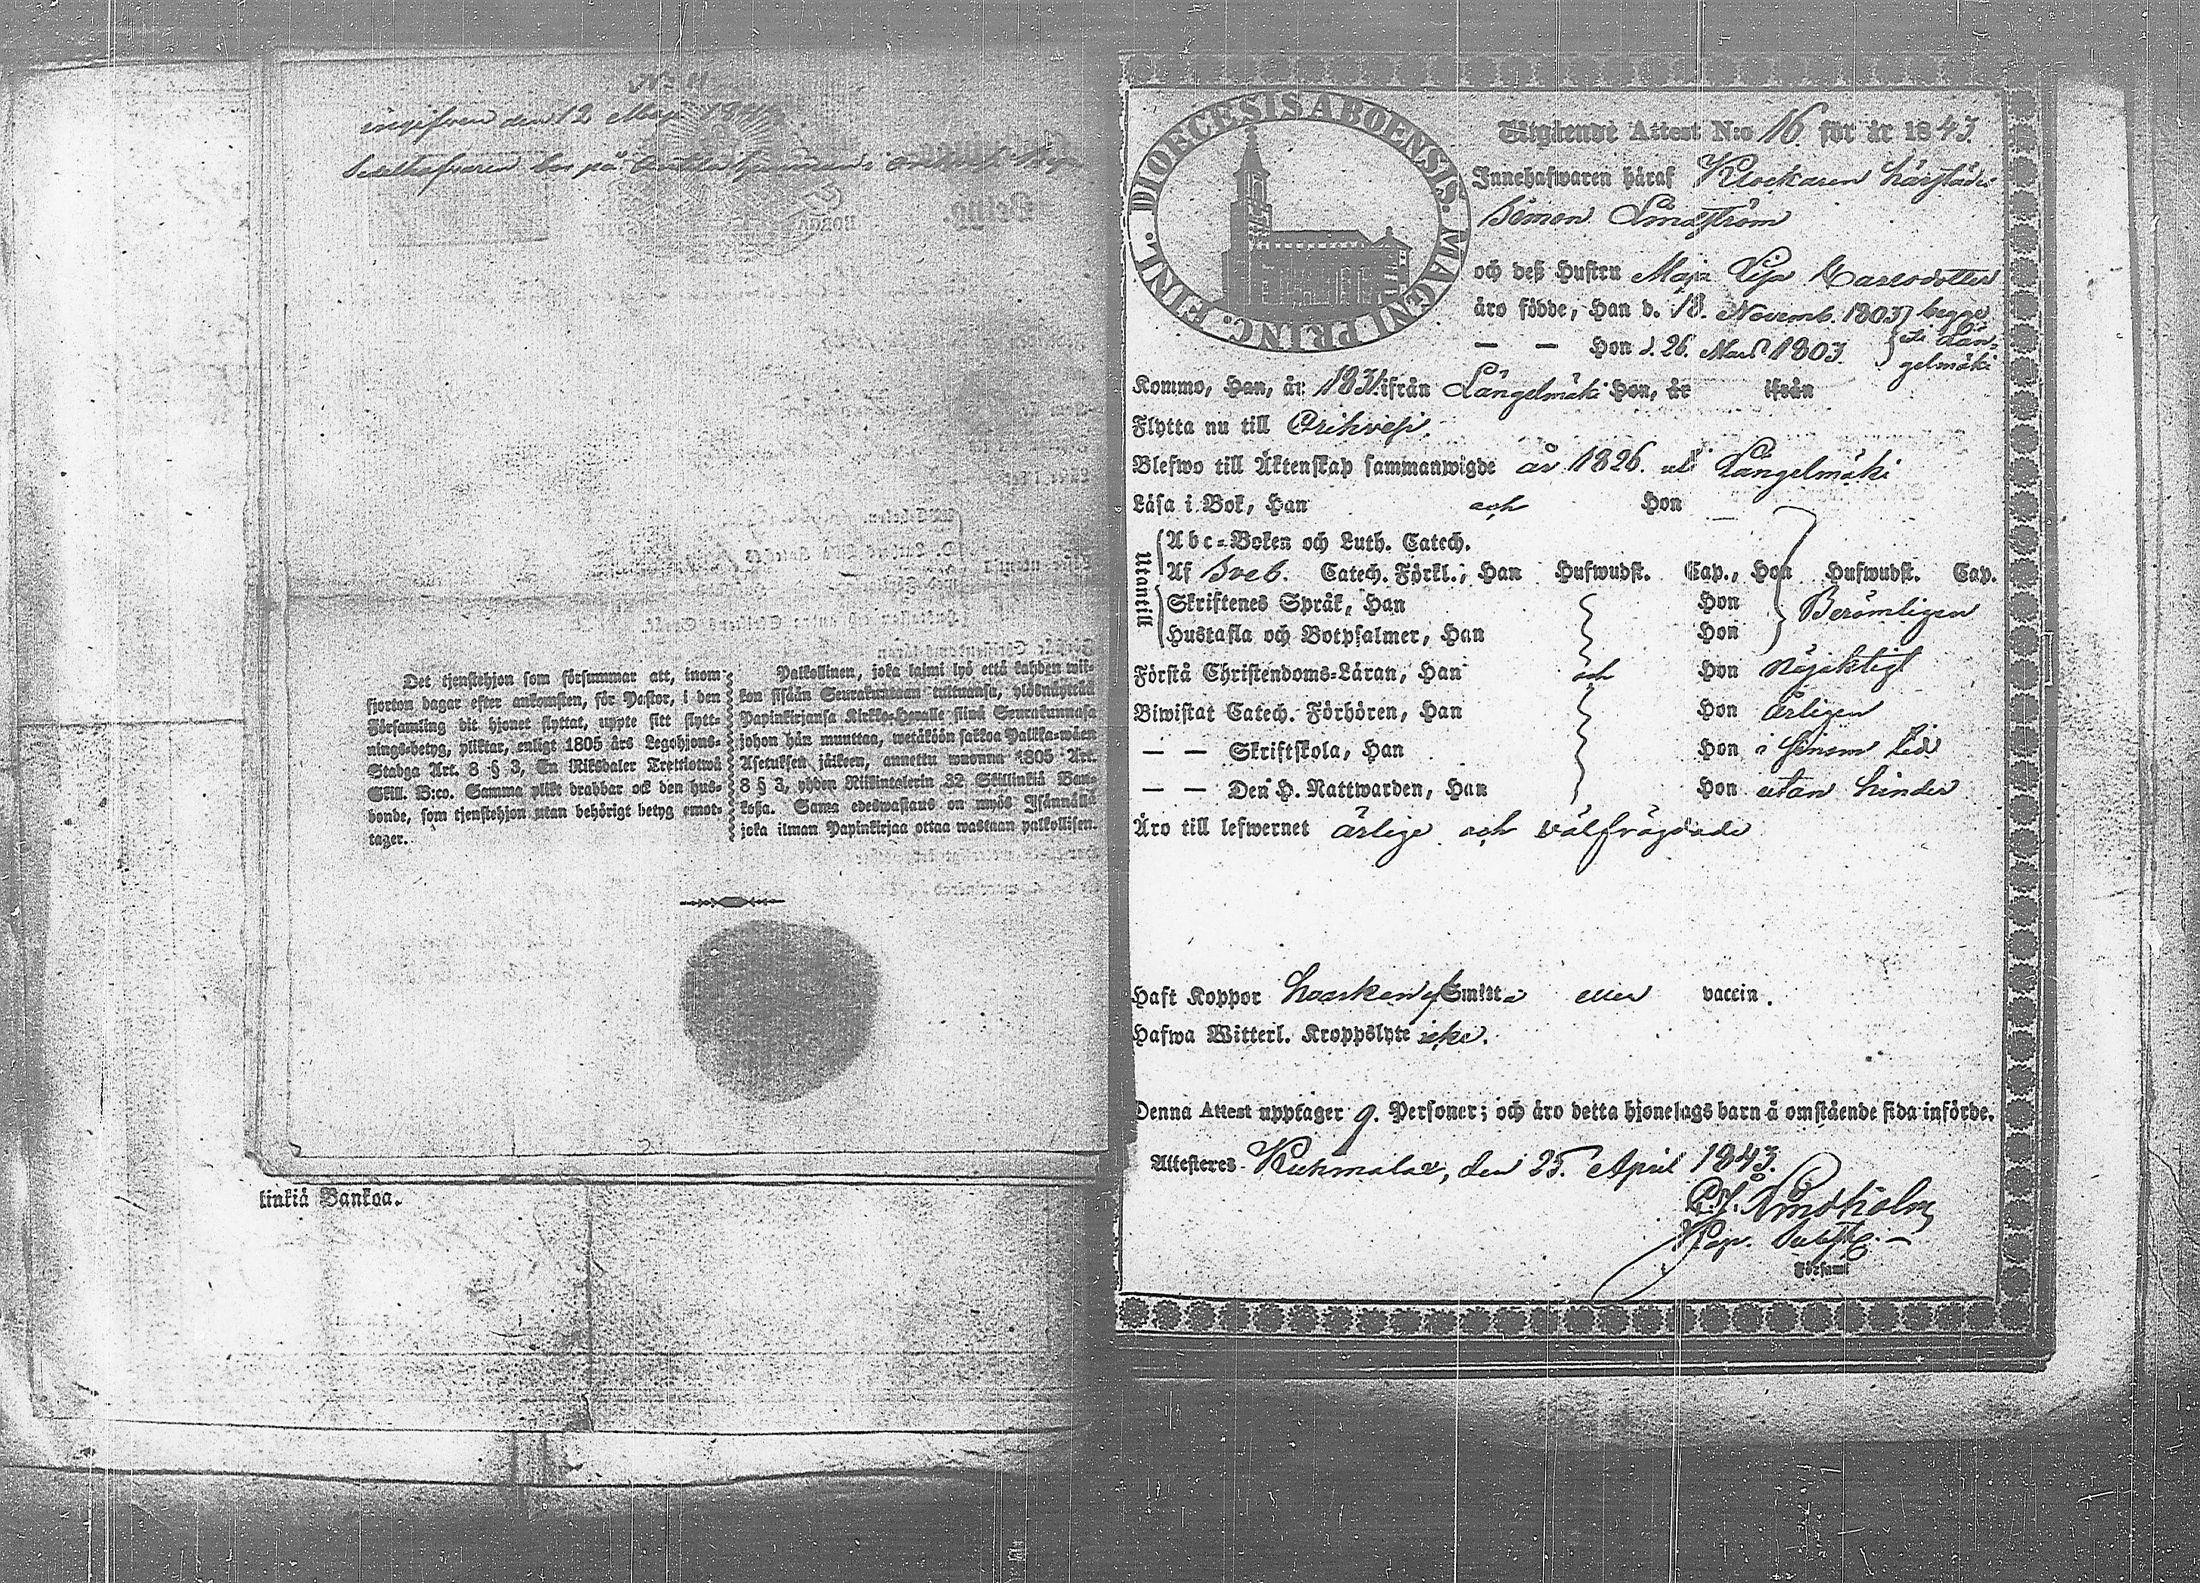 No 11
ingifven den 12 Maji 184
Det tjenstehjon som försummar att, inom
fjorton dagar efter ankomsten, för Pastor, i den
Församling dit hjonet flyttat, uppte sitt flytt-
nings-betyg, pliktar, enligt 1805 års Legohjons-
Stadga Art. 8 § 3, En Riksdaler Trettiotwå
Skill. B:co. Samma plikt drabbar ock den hus-
bonde, som tjenstehjon utan behörigt betyg emot-
tager.
Palkollinen, joka laimi lyö että kahden wii-
kon sisään Seurakuntaan tultuansa, ylösnäyttää
Papinkirjansa Kirkko-Herralle siinä Seurakunnasa
johon hän muuttaa, wetäköön sakkoa Palkka-wäen
Asetuksen jälkeen, annettu wuonna 1805 Art.
8 § 3, yhden Riikintalerin 32 Skillinkiä Ban-
kosa. Sama edeswastaus on myös Isännällä
joka ilman Papinkirjaa ottaa wastaan palkollisen.
linkiä Bankoa.
DIOECESIS ABOENSIS. MAGNI PRINC. FINL.
Utgående Attest N:o 16. för år 1843.
Innehafwaren häraf Klockaren härstädes
Simon Lindström
och deß Hustru Maja Lisa Carlsdotter
äro födde, Han d. 18. Novemb. 1803 begge
— — Hon d. 26. Mars 1803. i Län-
gelmäki
Kommo, Han, år 1831 ifrån Längelmäki Hon, år ifrån
Flytta nu till Orihvesi.
Blefwo till Äktenskap sammanwigde år 1826. uti Längelmäki
Läsa i Bok, Han och Hon
Utantill
Abc-Boken och Luth. Catech.
Af Sveb. Catech. Förkl., Han Hufwudst. Cap., Hon Hufwudst. Cap.
Skriftenes Språk, Han Hon Berömligen
Hustafla och Botpsalmer, Han Hon
Förstå Christendoms-Läran, Han och Hon Nöjaktigt
Biwistat Catech. Förhören, Han Hon årligen
— — Skriftskola, Han Hon i sinom tid
— — Den H. Nattwarden, Han Hon utan hinder
Äro till lefwernet ärlige och välfrägdade
Haft Koppor hvarken af Smitta eller vaccin.
Hafwa Witterl. Kroppslyte icke.
Denna Attest upptager 9. Personer; och äro detta hjonelags barn å omstående sida införde.
Attesteres Kuhmalax, den 25. April 1843.
C.J. Lindholm
Kap. Subst.
Församl